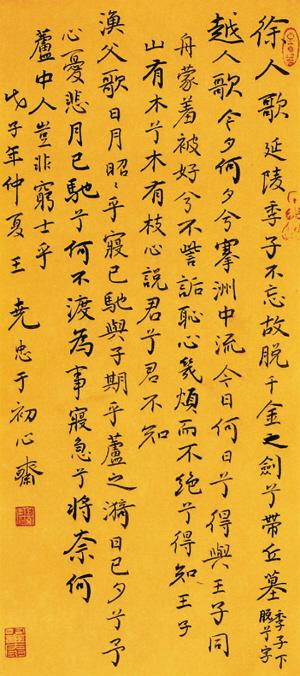 徐人歌 延陵季子不忘故脱千金之劍兮帶丘墓 季子下
脱兮字
越人歌 今夕何夕兮搴洲中流今日何日兮得與王子同
舟蒙羞被好兮不訾詬恥心幾煩而不絶兮得知王子
山有木兮木有枝心説君兮君不知
漁父歌日月昭〻乎寢已馳與子期乎蘆之漪日已夕兮予
心憂悲月已馳兮何不渡為事寢急兮將奈何
蘆中人豈非窮士乎
戊子年仲夏王堯忠于初心齋